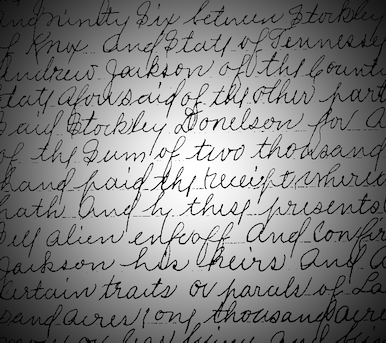 and ninety Six between Stockley
of Knox and State of Tennessee
Andrew Jackson of the County
State aforesaid of the other part
Said Stockley Donelson for a
of the Sum of two thousand
hand paid the receipt where
hath and by these presents
Sell alien enfeoff and confir
Jackson his heirs and a
Certain traits or parcels of La
sand acres one thousand acres